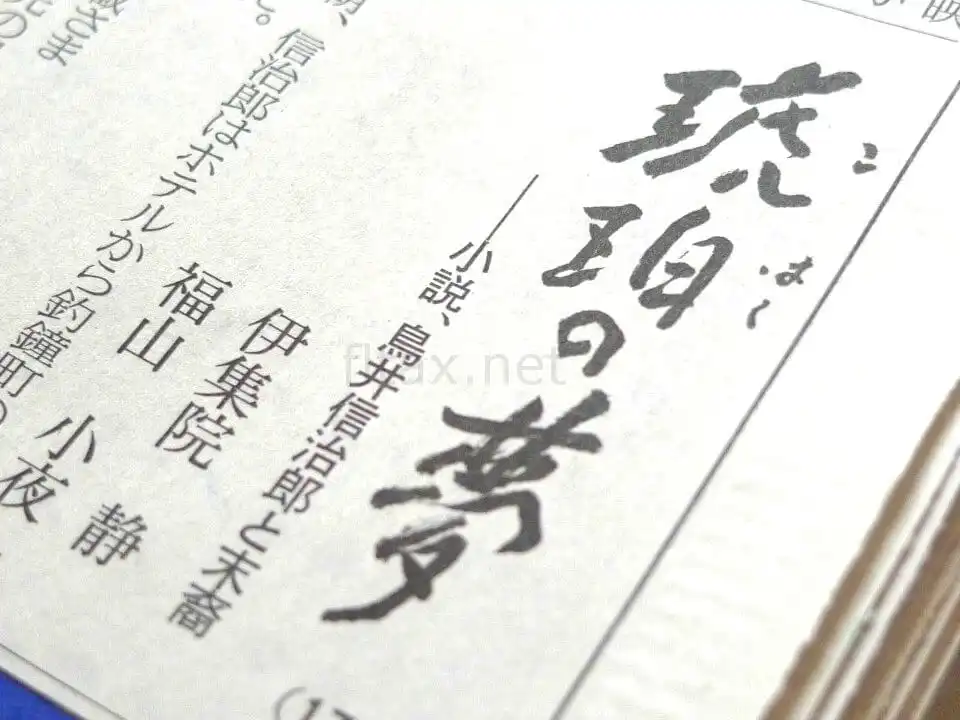 琥珀の夢
こはく
―小説、鳥井信治郎と末裔
伊集院 静
福山 小夜
信治郎はホテルから釣鐘町の
さま
fltax.net